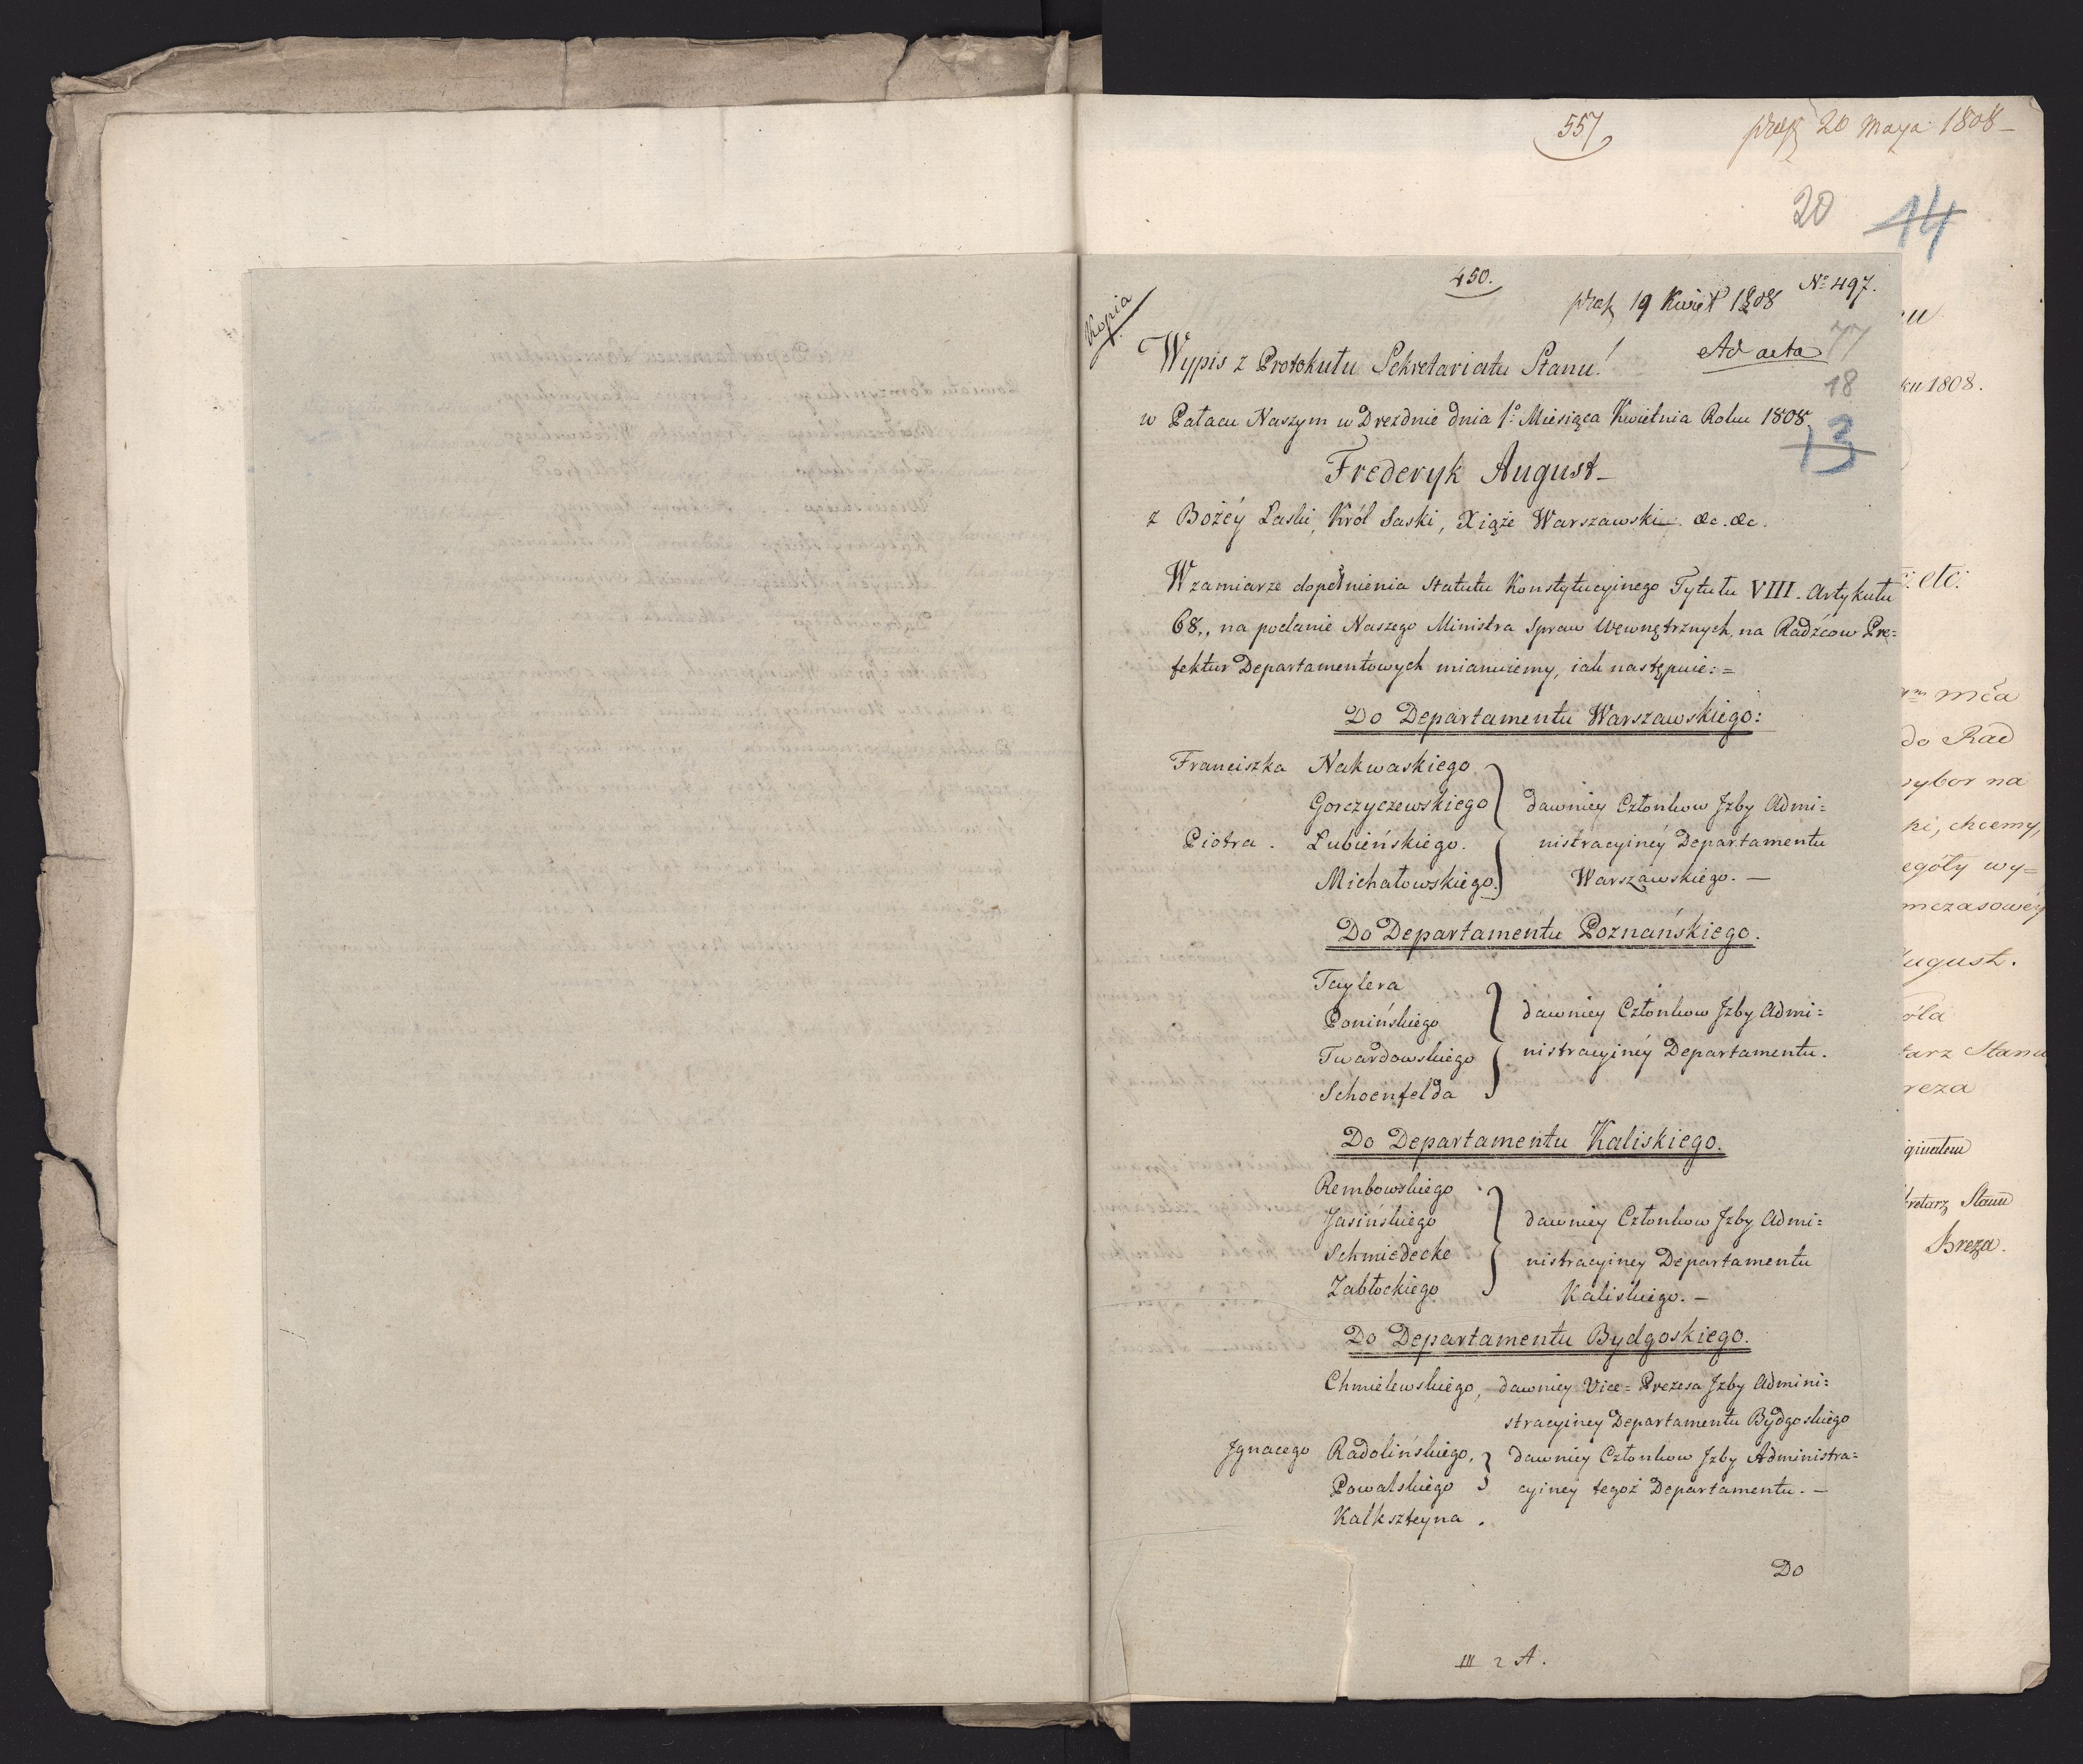 557
20 Maya 1808
20 14
450.
No 497.
19 Kwiet 1808
Kopia
Ad acta
77
Wypis z Protokułu Sekretariatu Stanu!
18
w Pałacu Naszym w Dreźdnie dnia 1o Miesiąca Kwietnia Roku 1808.
13
Frederyk August
z Bożéy Łaski, Król Saski, Xiąże Warszawski &c. &c.
W zamiarze dopełnienia Statutu Konstytucyinego Tytułu VIII. Artykułu
68., na podanie Naszego Ministra Spraw Wewnętrznych, na Radźcow Pre=
fektur Departamentowych mianuiemy, iak następuie:=
Do Departamentu Warszawskiego:
Franciszka Nakwaskiego
Gorczyczewskiego
Piotra. Łubieńskiego.
Michałowskiego.
dawniey Członkow Jzby Admi=
nistracyinéy Departamentu
Warszawskiego. —
Do Departamentu Poznańskiego.
Taylera
Ponińskiego
Twardowskiego
Schoenfelda
dawniey Członkow Jzby Admi=
nistracyinéy Departamentu.
Do Departamentu Kaliskiego.
Rembowskiego
Jasińskiego
Schmiedecke
Zabłockiego
dawniey Członkow Jzby Admi=
nistracyiney Departamentu
Kaliskiego. —
Do Departamentu Bydgoskiego.
Chmielewskiego, dawniey Vice=Prezesa Jzby Admini=
stracyiney Departamentu Bydgoskiego
Jgnacego Radolińskiego, dawniey Członkow Jzby Administra=
Powalskiego cyiney tegoż Departamentu. —
Kalksteyna.
Do
III 2 A.
ku 1808.
etc:
mca
do Rad
wybor na
chcemy,
wy=
mczasowéy
August.
Stanu
Breza
Stanu
Breza.